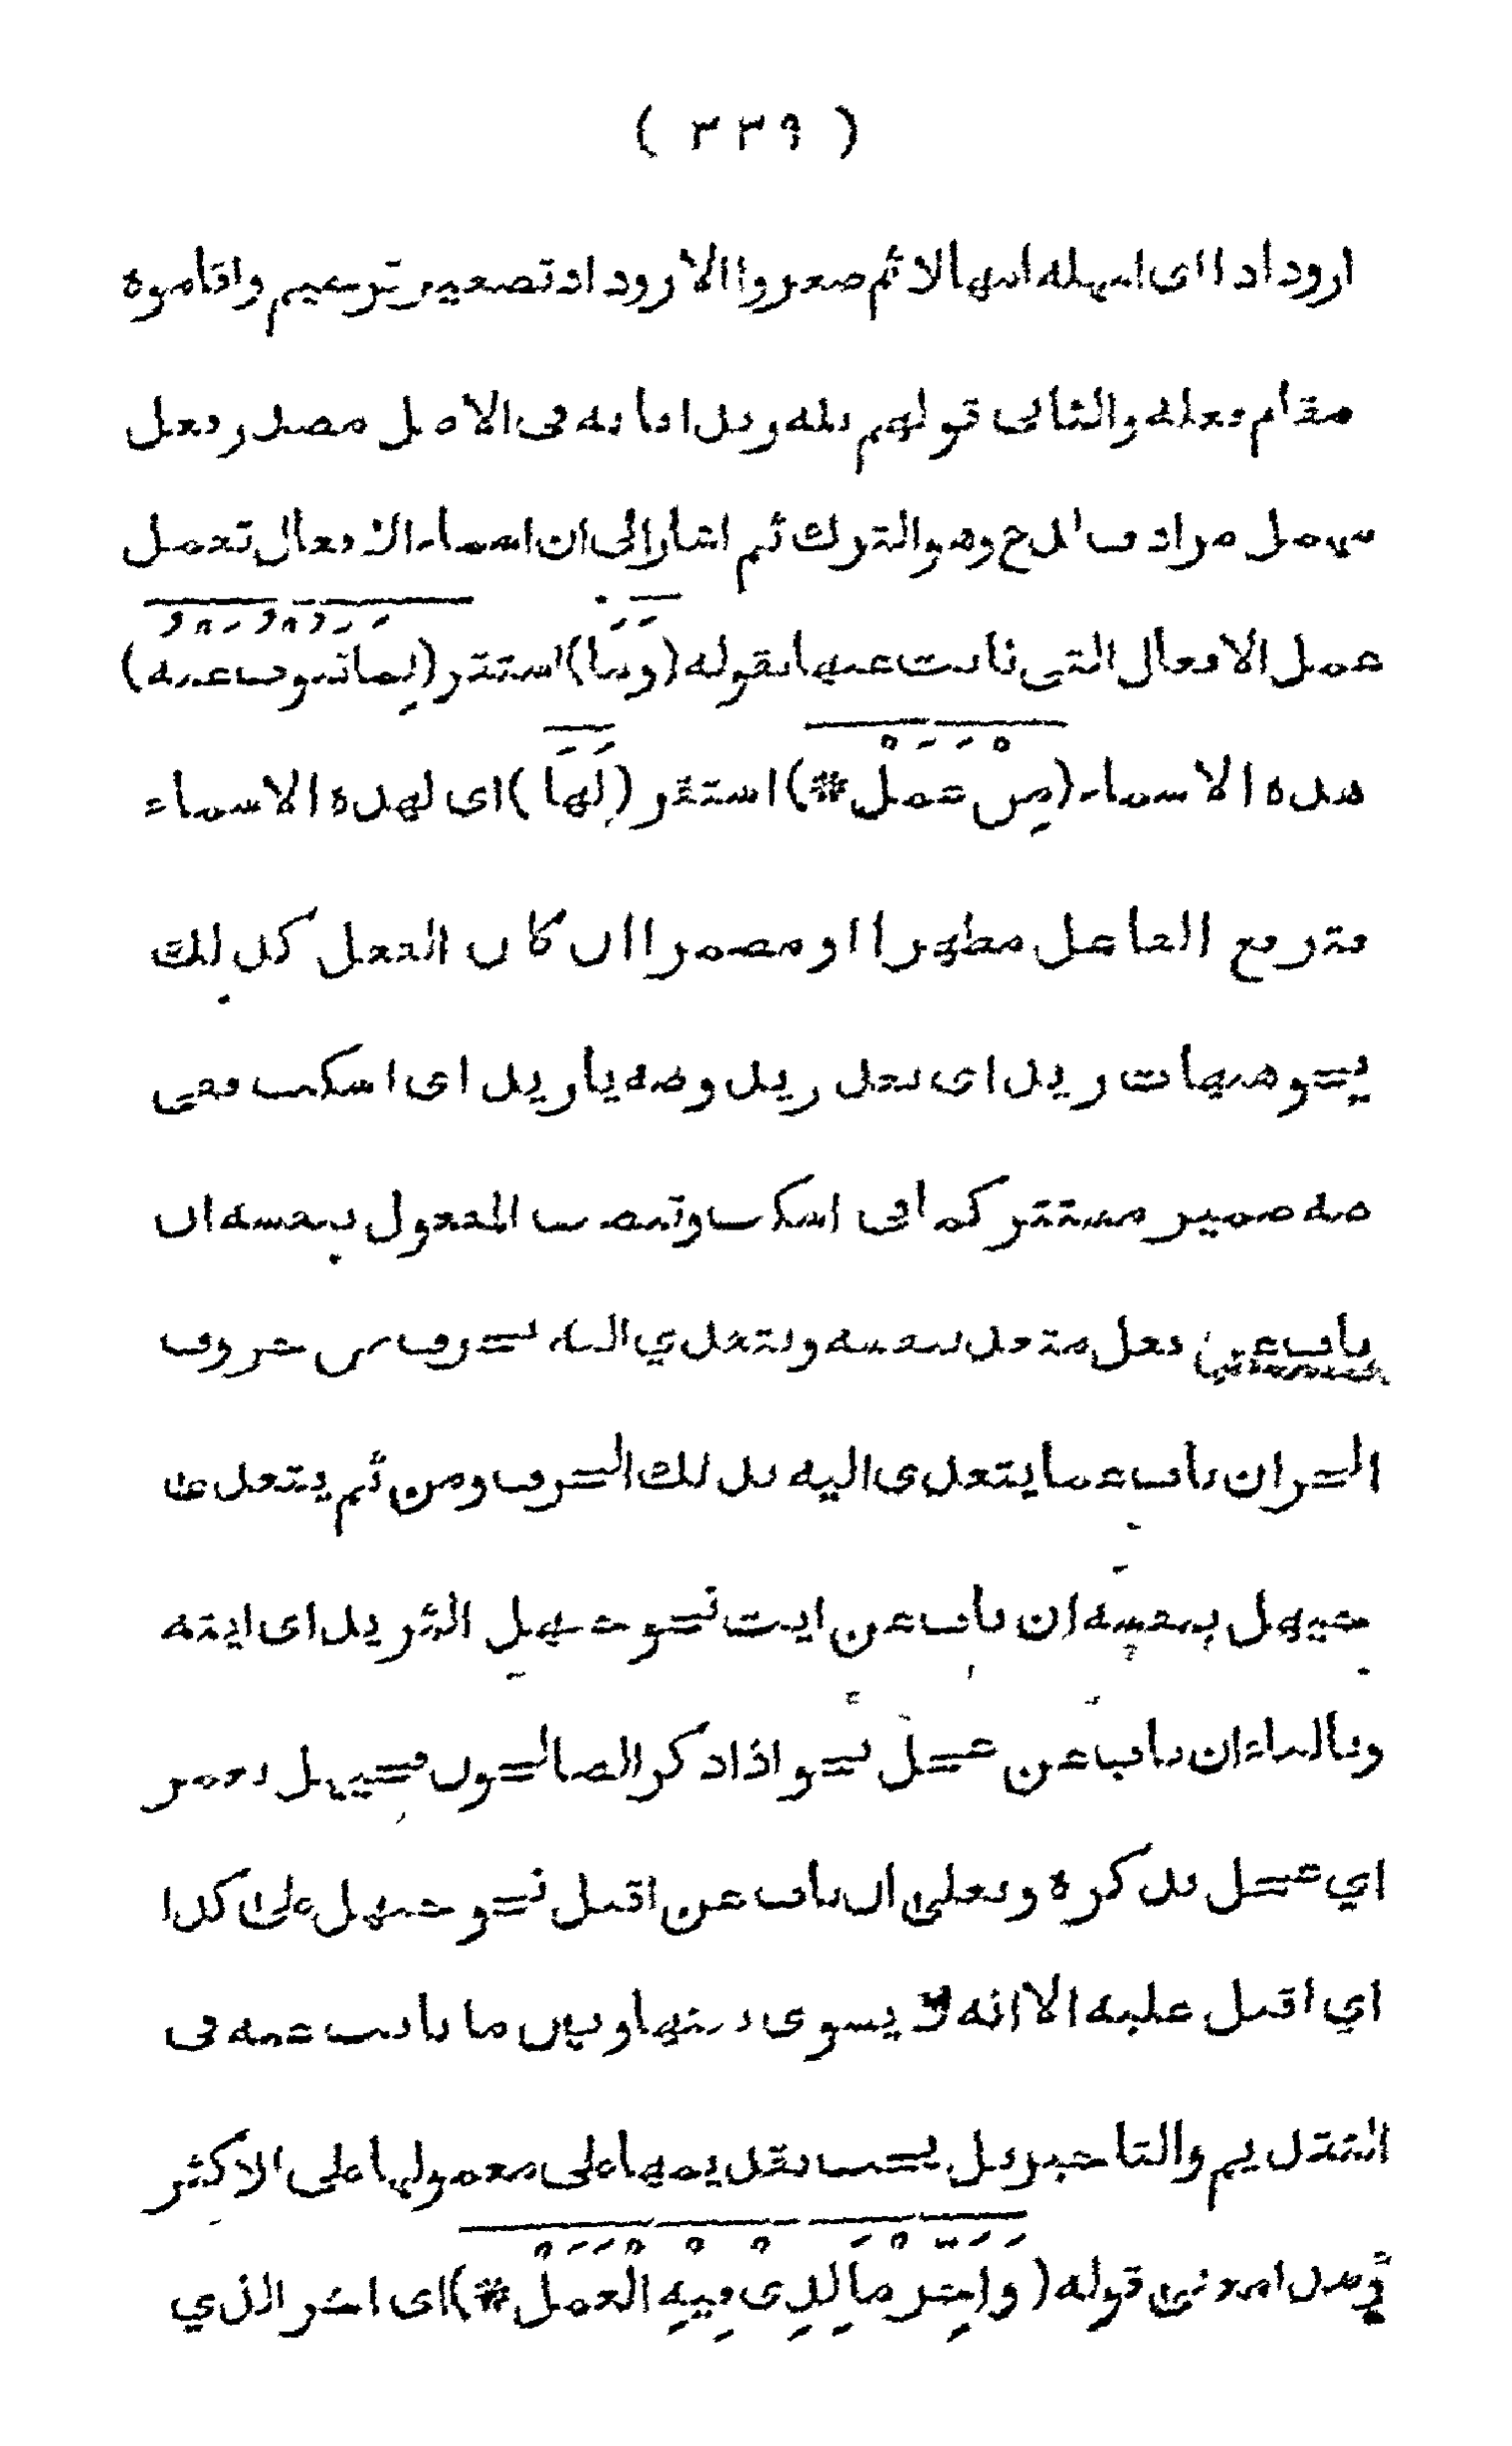 ( ٣٣٩ )
اروداد ا اى امهله امهالا ثم صغروا الارواد تصغير ترخيم واقاموه
مقام فعله والثانى قولهم بله زيدا فانه فى الاصل مصدر فعل
مهمل مرادف لدع وهو اترك ثم اشار الى ان اسماء الافعال تعمل
عمل الافعال التى نابت عنها بقوله (وَمَا) استقر (لِمَا تَنُوبُ عَنْهُ)
هذه الاسماء (مِنْ عَمَلْ #) استقر (لَهَا) اى لهذه الاسماء
فترفع الفاعل مظهرا او مضمرا ان كان الفعل كذلك
نحو هيهات زيد اى بعد زيد وصه يا زيد اى اسكت ففى
صه ضمير مستتر كما فى اسكت وتنصب المفعول بنفسه ان
ناب عن فعل متعد بنفسه وتتعدي اليه بحرف من حروف
الجر ان ناب عما يتعدى اليه بذلك الحرف ومن ثم يتعدى
حيهل بنفسه ان ناب عن ايت نحو حيهل الثريد اى ايته
وبالباء ان ناب عن عجل نحو اذا ذكر الصالحون فحيهل بعمر
اي عجل بذكره وبعلى ان ناب عن اقبل نحو حيهل على كذا
اي اقبل عليه الا انه لا يسوى بينها وبين ما نابت عنه فى
التقديم والتاخير بل يجب تقديمها على معمولها على الاكثر
قوله (وَاخِّرْ مَا لِذِى فِيهِ الْعَمَلْ #) اى اخر الذي